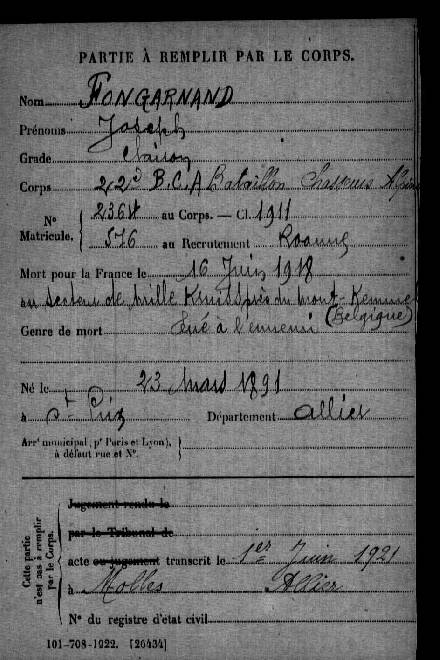 PARTIE À REMPLIR PAR LE CORPS.
Nom FONGARNAND
Prénoms Joseph
Grade Clairon
Corps 22e B.C.A Bataillon Chasseurs Alpins
Nº Matricule. 2364 au Corps. — Cl. 1911
576 au Recrutement Roanne
Mort pour la France le 16 Juin 1918
au secteur de Mille près du Mont-Kemmel
(Belgique)
Genre de mort Tué à l'ennemi
Né le 23 Mars 1891
à St Prix Département Allier
Arrt municipal (pr Paris et Lyon), à défaut rue et Nº.
Cette partie n'est pas à remplir par le Corps.
Jugement rendu le
par le Tribunal de
acte ou jugement transcrit le 1er Juin 1921
à Molles Allier
Nº du registre d'état civil
101-708-1922. [26434]